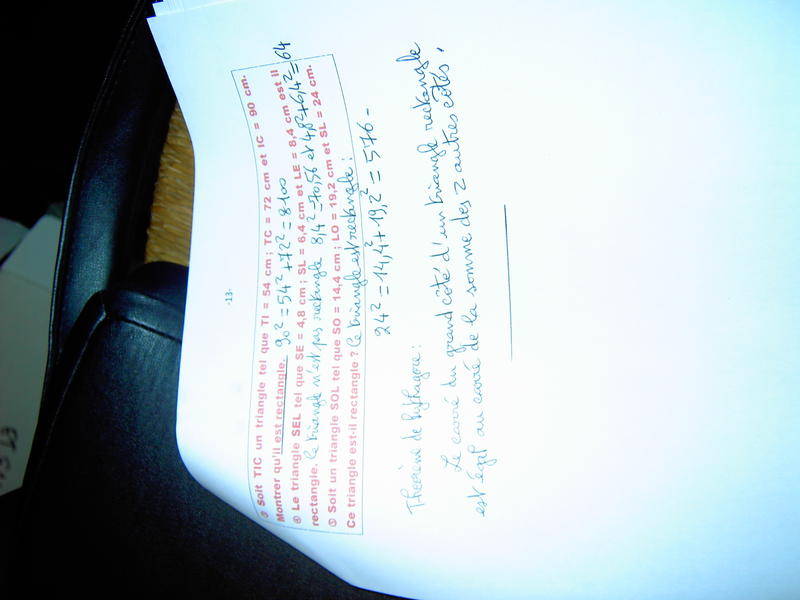 -13-
③ Soit TIC un triangle tel que TI = 54 cm ; TC = 72 cm et IC = 90 cm.
Montrer qu'il est rectangle. 90² = 54² + 72² = 8100
④ Le triangle SEL tel que SE = 4,8 cm ; SL = 6,4 cm et LE = 8,4 cm est il
rectangle. Ce triangle n'est pas rectangle 8,4² = 70,56 et 4,8² + 6,4² = 64
⑤ Soit un triangle SOL tel que SO = 14,4 cm ; LO = 19,2 cm et SL = 24 cm.
Ce triangle est-il rectangle ? Ce triangle est rectangle :
24² = 14,4² + 19,2² = 576 -
Théorème de Pythagore :
Le carré du grand côté d'un triangle rectangle
est égal au carré de la somme des 2 autres côtés.